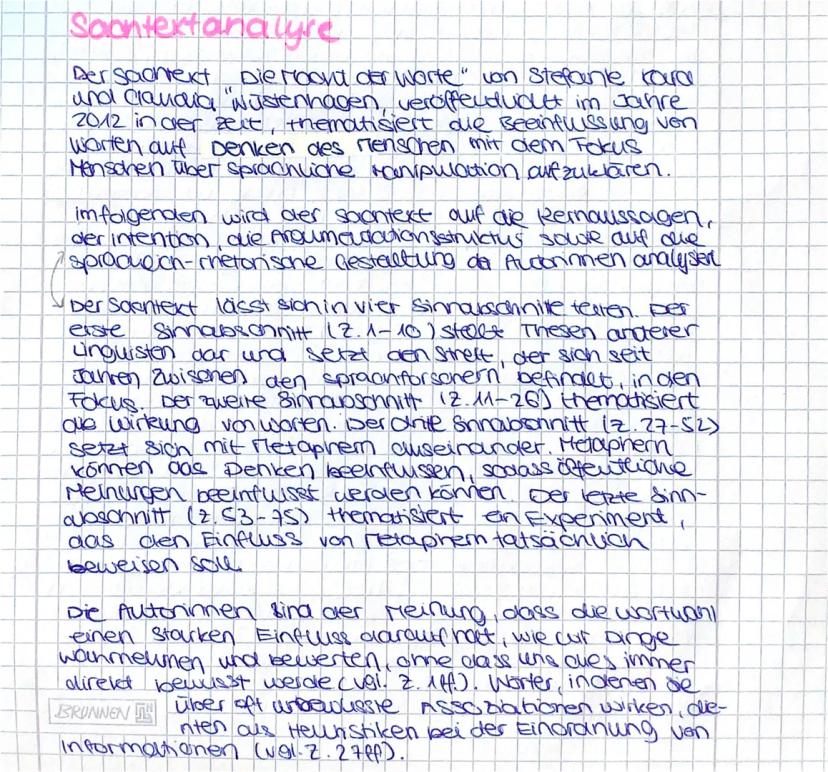 Sachtextanalyse
Der Sachtext „Die Macht der Worte" von Stefanie Kara
und Claudia Wüstenhagen, veröffentlicht im Jahre
2012 in der Zeit, thematisiert die Beeinflussung von
Worten auf Denken des Menschen mit dem Fokus
Menschen über sprachliche Manipulation aufzuklären.
Im folgenden wird der Sachtext auf die Kernaussagen,
der Intention, die Argumentationsstruktur sowie auf die
sprachlich-rhetorische Gestaltung der Autorinnen analysiert
Der Sachtext lässt sich in vier Sinnabschnitte teilen. Der
erste Sinnabschnitt (Z. 1-10) stellt Thesen anderer
Linguisten dar und setzt den Streit, der sich seit
Jahren zwischen den Sprachforschern befindet, in den
Fokus. Der zweite Sinnabschnitt (Z. 11-26) thematisiert
die Wirkung von Worten. Der dritte Sinnabschnitt (Z. 27-52)
setzt sich mit Metaphern auseinander. Metaphern
können das Denken beeinflussen, sodass öffentliche
Meinungen beeinflusst werden können. Der letzte Sinn-
abschnitt (Z. 53-75) thematisiert ein Experiment,
das den Einfluss von Metaphern tatsächlich
beweisen soll.
Die Autorinnen sind der Meinung, dass die Wortwahl
einen starken Einfluss darauf hat, wie wir Dinge
wahrnehmen und bewerten, ohne dass uns dies immer
direkt bewusst werde (vgl. Z. 1ff.). Wörter, in denen sie
über oft unbewusste Assoziationen wirken, die-
BRUNNEN
nten als Heuristiken bei der Einordnung von
Informationen (vgl. Z. 27ff).